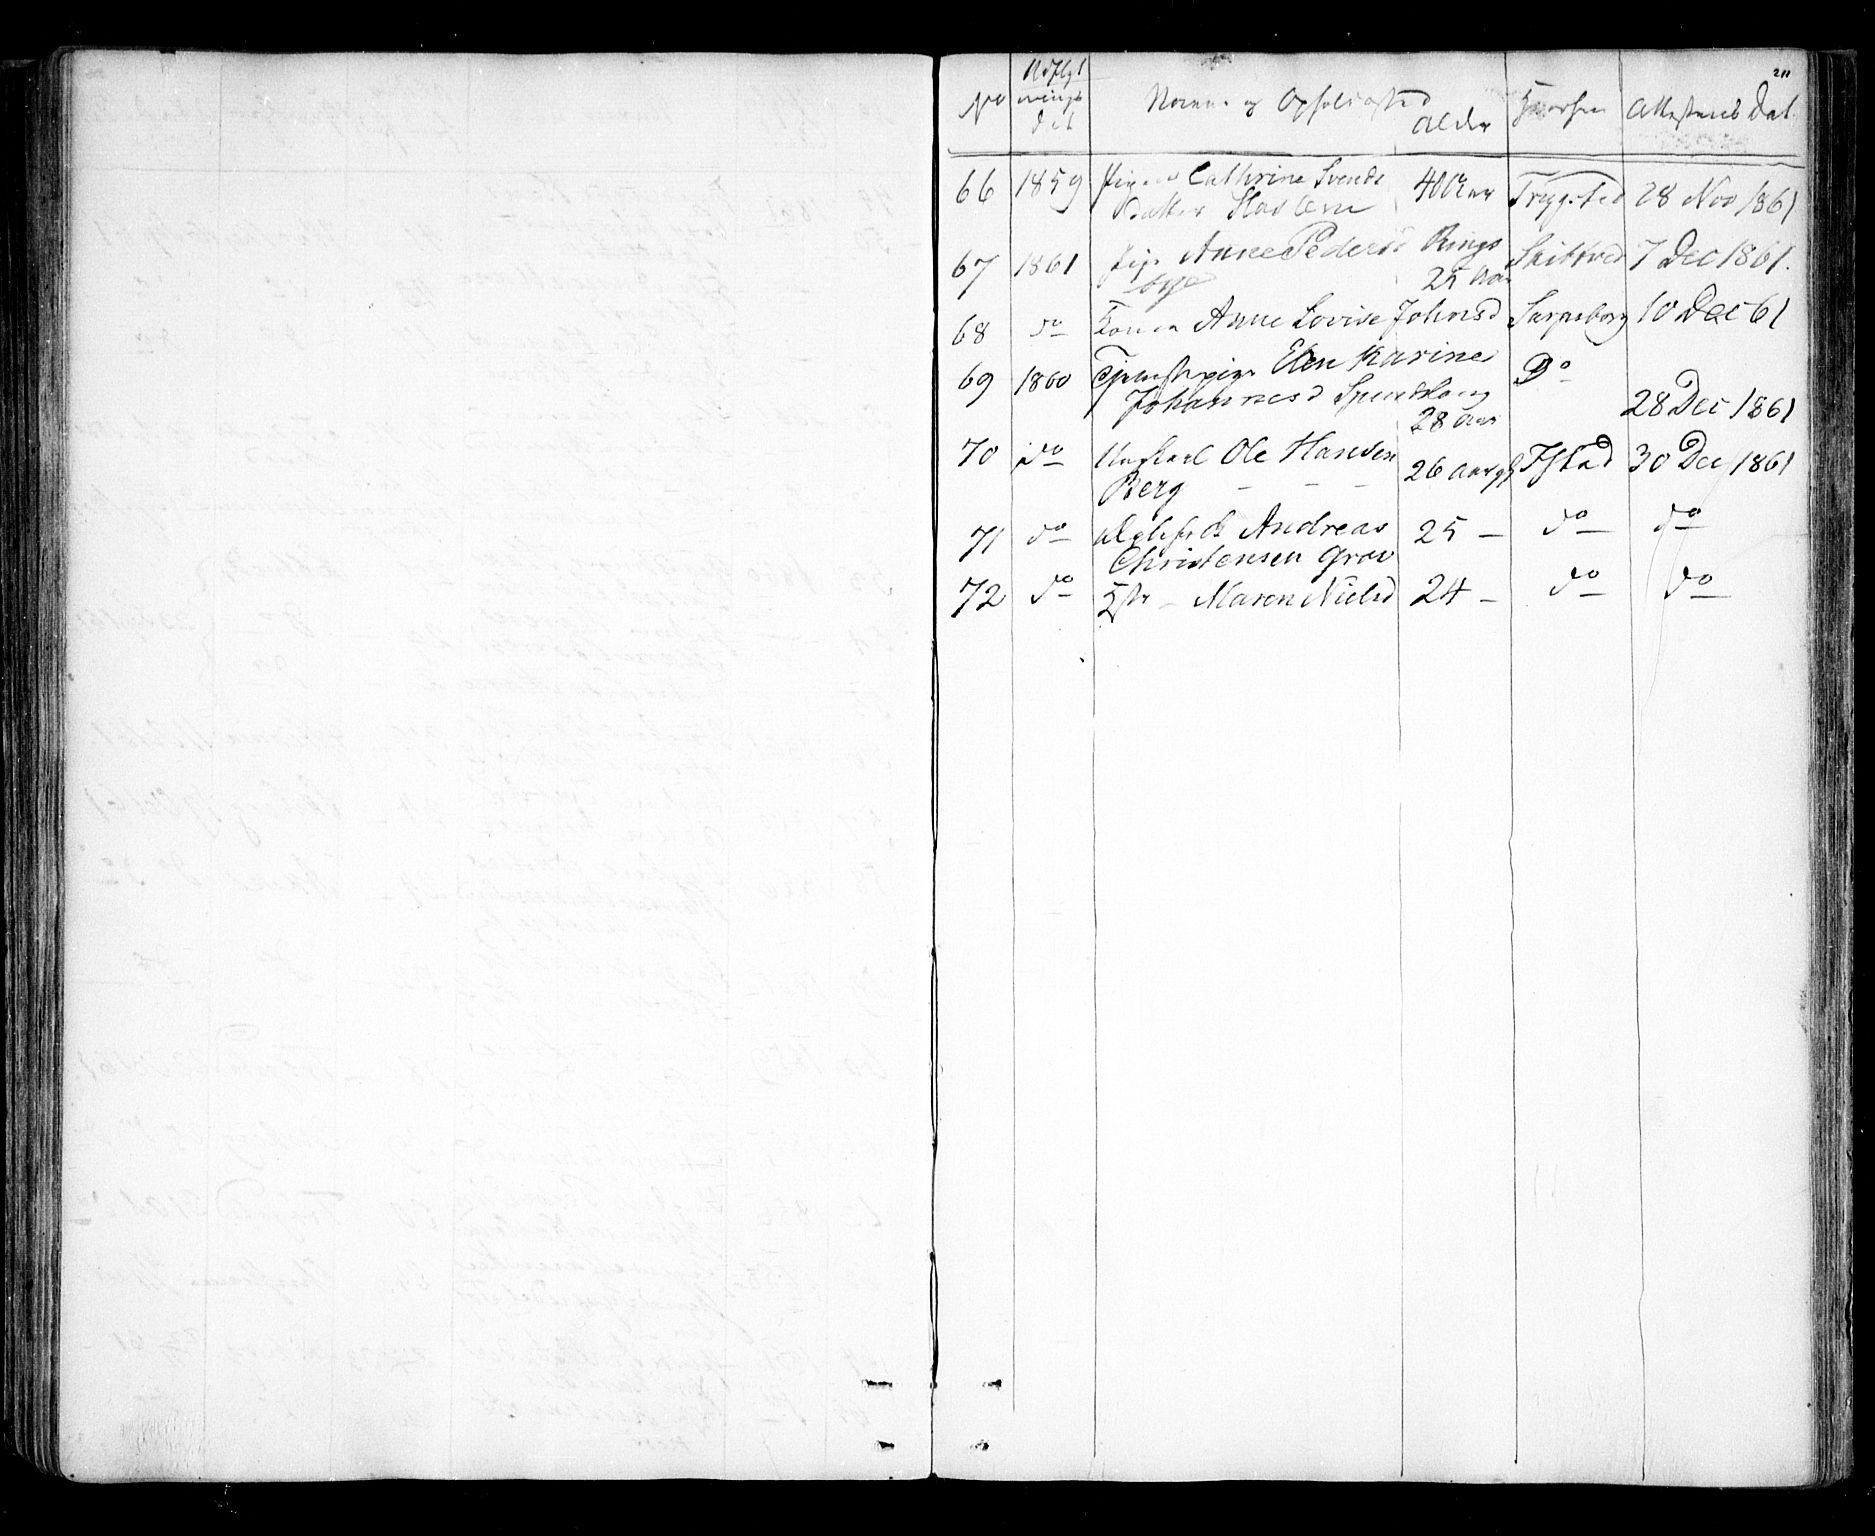 211
No Udflyt Navne og Opholdssted Alder Hvorhen Attestens Dat
66 1859 Pigen Cathrine Svends 40 Aar Trygsted 28 Nov 1861
Datter
67 1861 Pige Anne Pedersd Rings Skibtved 7 Dec 1861.
bye 25 Aar
68 do Konen Anne Lovise Johnsd Sarpsborg 10 Dec 61
69 1860 Tjenestepige Elen Karine Do
Johannesd Spundsberg 28 Aar 28 Dec 1861
70 do Ungkarl Ole Hansen 26 Aar gl Ystad 30 Dec 1861
Berg - - -
71 do Andreas 25 - do do
Christensen Grav
72 do - Maren Nielsd 24 - do do